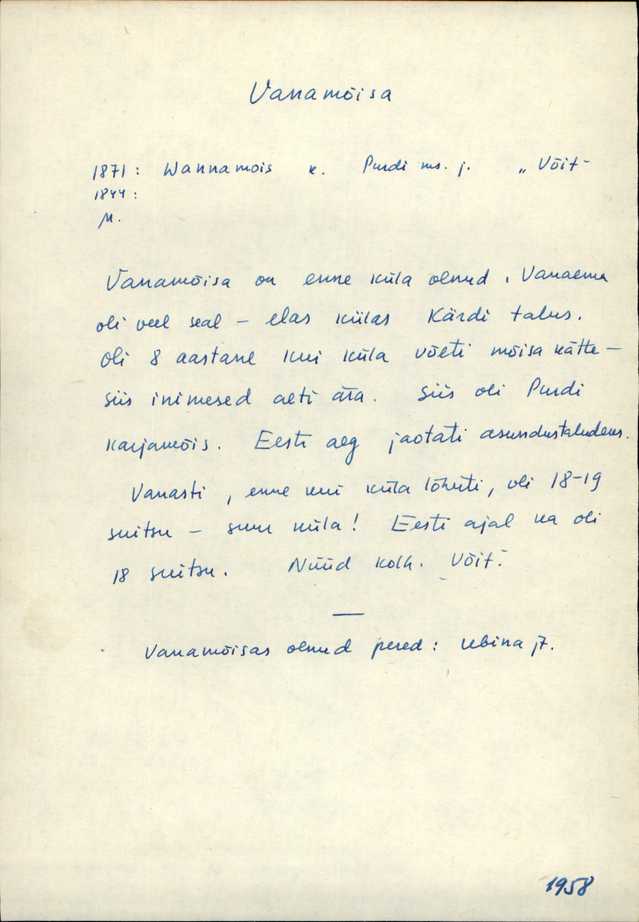 Vanamõisa
1871: Wannamois k. Purdi ms. j. „Võit"
1844:
M.
Vanamõisa on enne küla olnud. Vanaema
oli veel seal – elas külas Kärdi talus.
Oli 8 aastane kui küla võeti mõisa kätte –
siis inimesed aeti ära. Siis oli Purdi
karjamõis. Eesti aeg jaotati asundustaludeks.
Vanasti, enne kui küla lõhuti, oli 18-19
suitsu – suur küla! Eesti ajal ka oli
18 suitsu. Nüüd kolh. Võit.
—
Vanamõisas olnud pered: Ubina j7.
1958